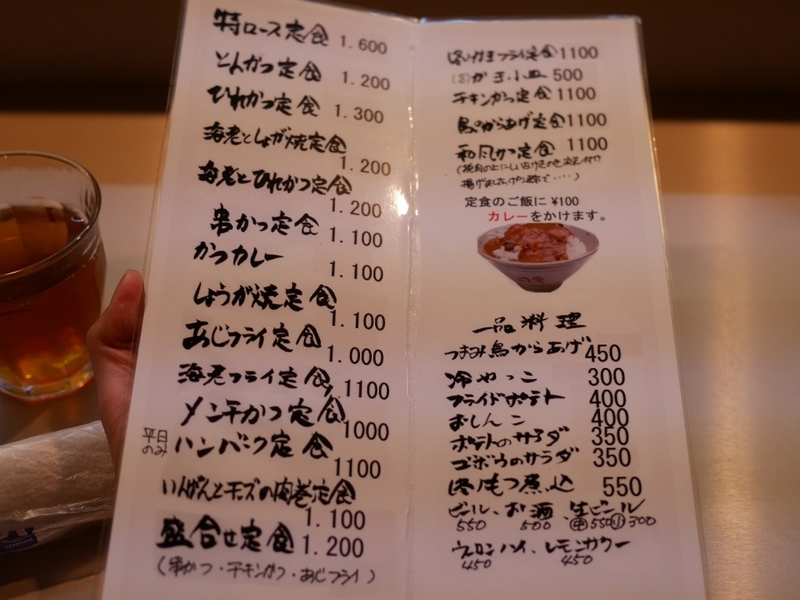 特ロース定食 1.600
とんかつ定食 1.200
ひれかつ定食 1.300
海老としょが焼定食
1.200
海老とひれかつ定食
1.200
串かつ定食 1.100
かつカレー 1.100
しょうが焼定食
1.100
あじフライ定食 1.000
海老フライ定食 1100
メンチかつ定食 1000
平日のみ ハンバーク定食
1100
いんげんとチーズの肉巻定食
1.100
盛合せ定食 1.200
(串かつ・チキンかつ・あじフライ)
かきフライ定食 1100
かき小皿 500
チキンかつ定食 1100
鳥のからあげ定食 1100
和風かつ定食 1100
揚げました。ポン酢で・・・・)
定食のご飯に ¥100
カレーをかけます。
一品料理
つまみ鳥からあげ 450
冷やっこ 300
フライドポテト 400
おしんこ 400
ポテトのサラダ 350
ゴボウのサラダ 350
もつ煮込 550
ビール、お酒 生ビール
550 500 中550 小300
ウーロンハイ、レモンサワー
450 450